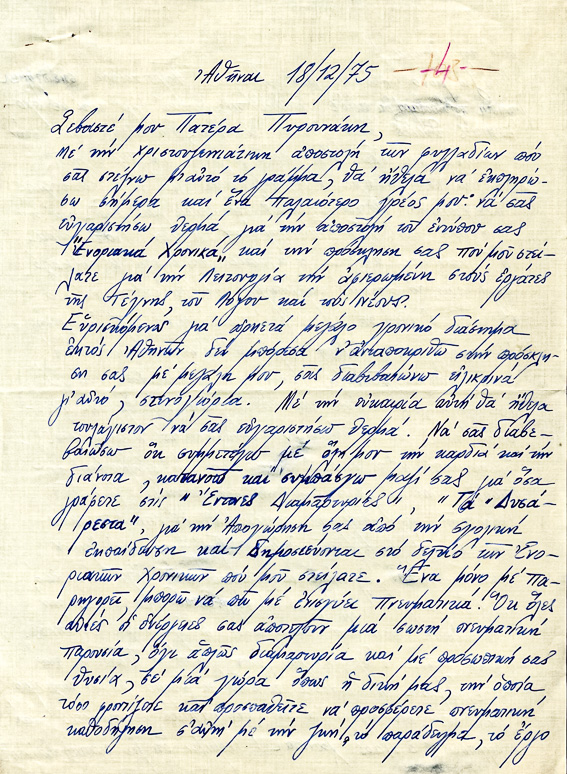 Ἀθῆναι 18/12/75
Σεβαστέ μου Πατέρα Πυρουνάκη,
Μέ τήν Χριστουγεννιάτικη ἀποστολή τῶν φυλλαδίων πού
σᾶς στέλνω μ' αὐτό τό γράμμα, θά ἤθελα νά ἐκπληρώ-
σω σήμερα καί ἕνα παλαιότερο χρέος μου· νά σᾶς
εὐχαριστήσω θερμά γιά τήν ἀποστολή τοῦ ἐντύπου σας
"Ἐνοριακά Χρονικά", καί τήν πρόσκληση σας πού μοῦ στεί-
λατε γιά τήν Λειτουργία τήν ἀφιερωμένη στούς ἐργάτες
τῆς Τέχνης, τοῦ Λόγου καί τούς νέους.
Εὑρισκόμενος γιά ἀρκετά μεγάλο χρονικό διάστημα
ἐκτός Ἀθηνῶν δέν μπόρεσα ν' ἀνταποκριθῶ στήν πρόσκλη-
ση σας μέ μεγάλη μου, σᾶς διαβεβαιώνω εἰλικρινά
γι' αὐτό, στενοχώρια. Μέ τήν εὐκαιρία αὐτή θά ἤθελα
τουλάχιστον νά σᾶς εὐχαριστήσω θερμά. Νά σᾶς διαβε-
βαιώσω ὅτι συμμετέχω μέ ὅλη μου τήν καρδιά καί τήν
διάνοια, κατανοῶ καί συμπάσχω μαζί σας γιά ὅσα
γράφετε στίς "Ἔντονες Διαμαρτυρίες", "Τά Δυσά-
ρεστα", γιά τήν Ἀποχώρηση σας ἀπό τήν σχολική
ἐκπαίδευση καί δημοσιεύονται στό δελτίο τῶν Ἐνο-
ριακῶν Χρονικῶν πού μοῦ στείλατε. Ἕνα μόνο μέ πα-
ρηγορεῖ μπορῶ νά πῶ μέ ἐνισχύει πνευματικά. Ὅτι ὅλες
αὐτές οἱ ἐνέργειες σας ἀποτελοῦν μιά σωστή πνευματική
παρουσία, ὄχι ἁπλῶς διαμαρτυρία καί μέ προσωπική σας
θυσία, σέ μιά χώρα ὅπως ἡ δική μας, τήν ὁποία
τόσο φροντίζετε καί προσπαθεῖτε νά προσφέρετε πνευματική
καθοδήγηση σ' αὐτή μέ τήν ζωή, τό παράδειγμα, τό ἔργο